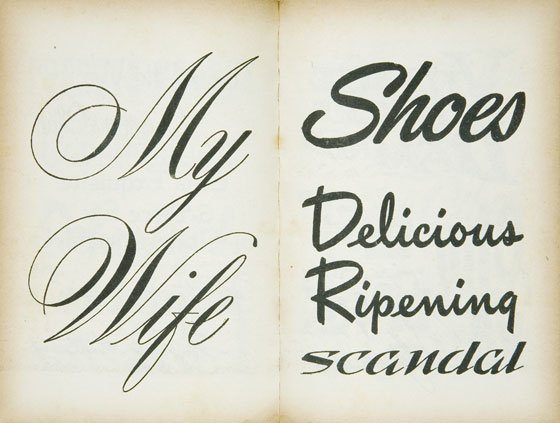 My
Wife
Shoes
Delicious
Ripening
scandal